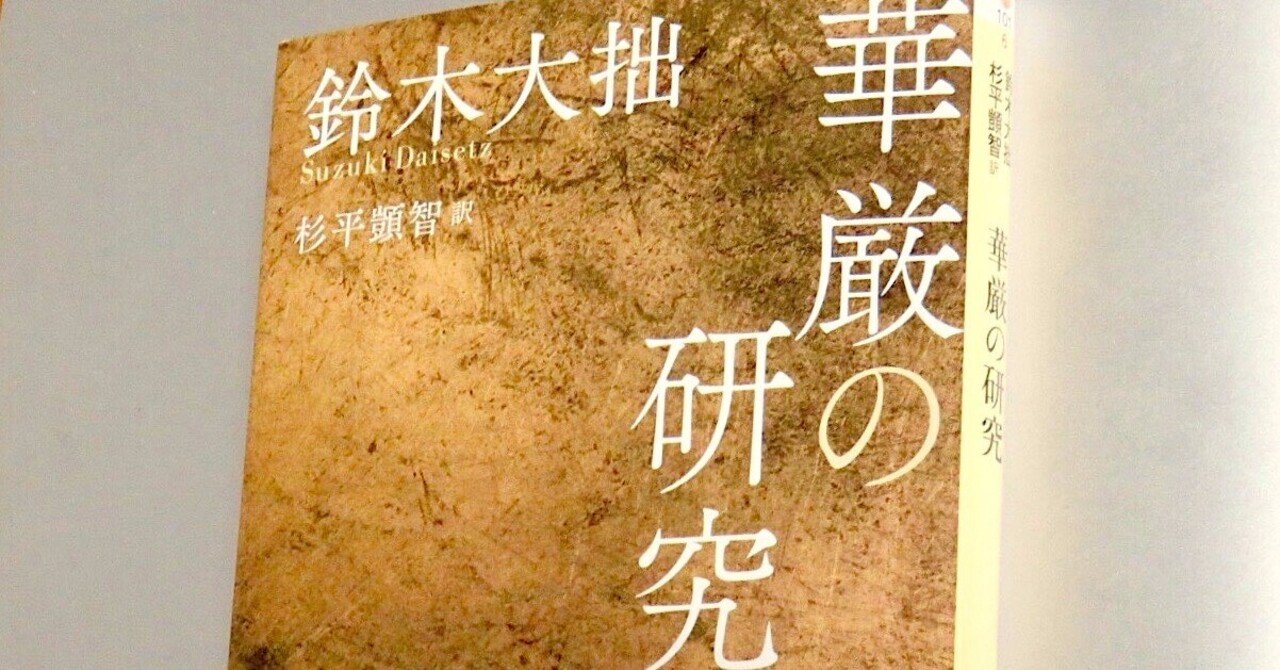 華厳の
研究
鈴木大拙
Suzuki Daisetz
杉平顗智 訳
鈴木大拙
杉平顗智 訳
華厳の研究